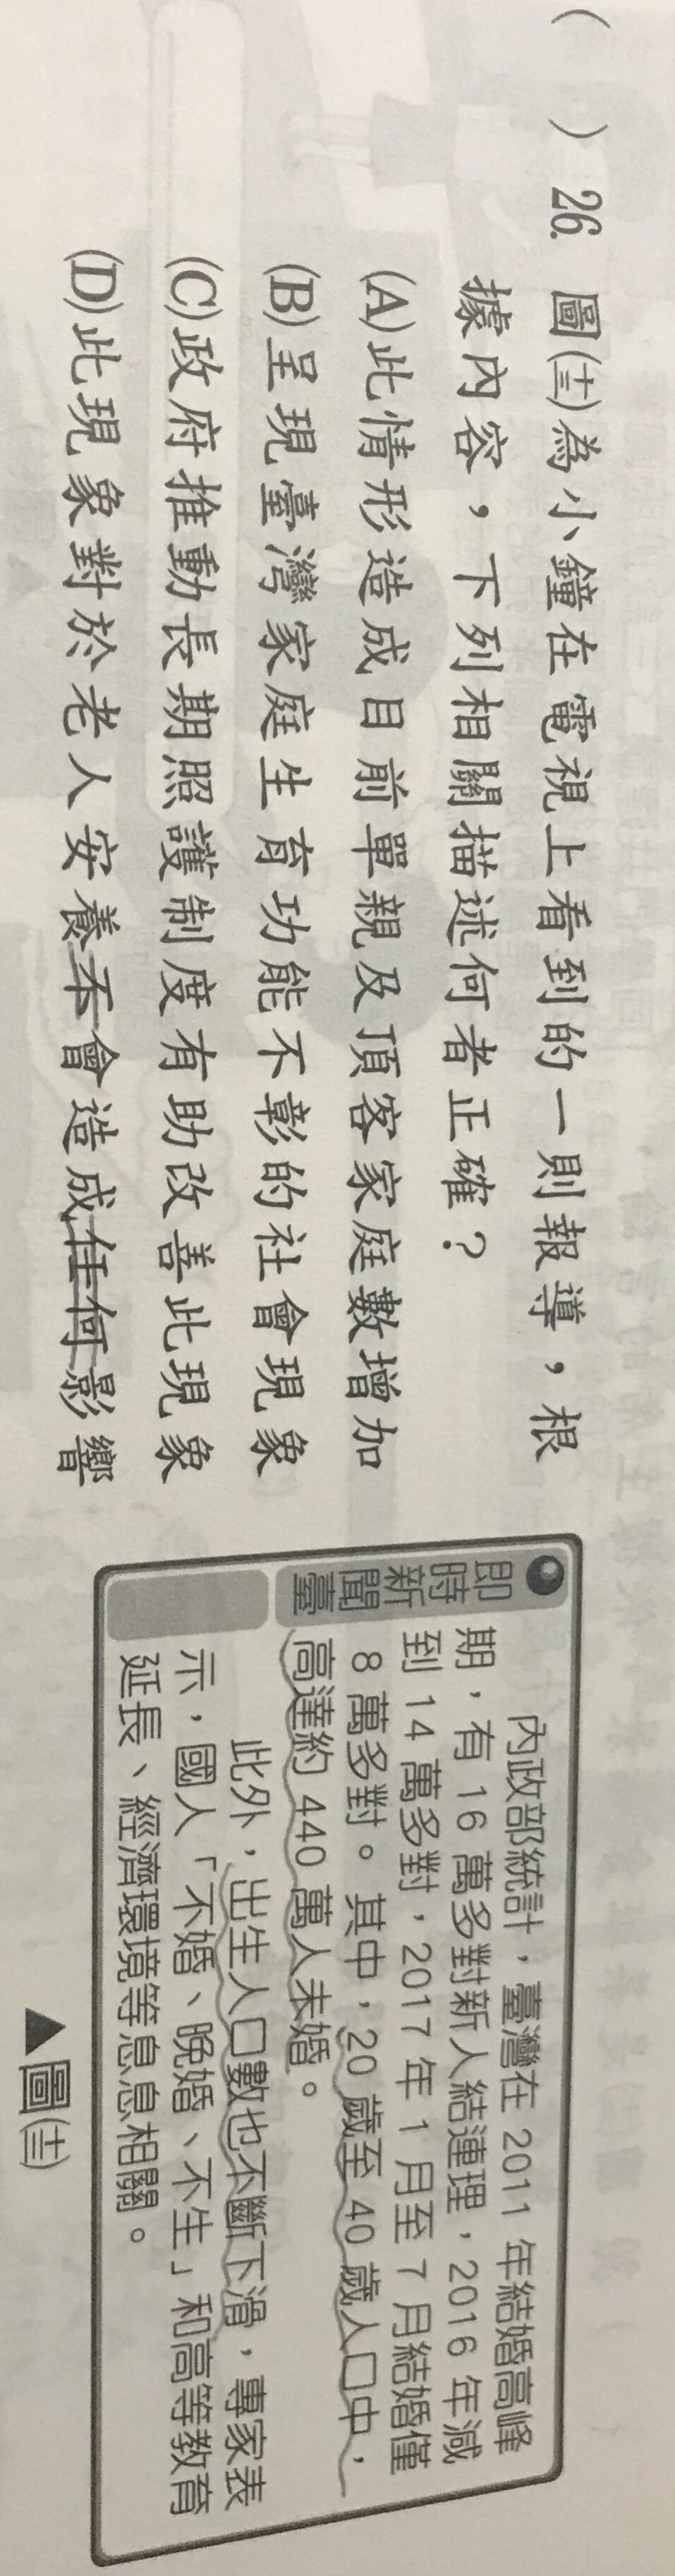 (　) 26. 圖(十三)為小鐘在電視上看到的一則報導，根
據內容，下列相關描述何者正確？
(A)此情形造成目前單親及頂客家庭數增加
(B)呈現臺灣家庭生育功能不彰的社會現象
(C)政府推動長期照護制度有助改善此現象
(D)此現象對於老人安養不會造成任何影響
即時新聞臺
內政部統計，臺灣在 2011 年結婚高峰
期，有 16 萬多對新人結連理，2016 年減
到 14 萬多對，2017 年 1 月至 7 月結婚僅
8 萬多對。其中，20 歲至 40 歲人口中，
高達約 440 萬人未婚。
此外，出生人口數也不斷下滑，專家表
示，國人「不婚、晚婚、不生」和高等教育
延長、經濟環境等息息相關。
▲圖(十三)